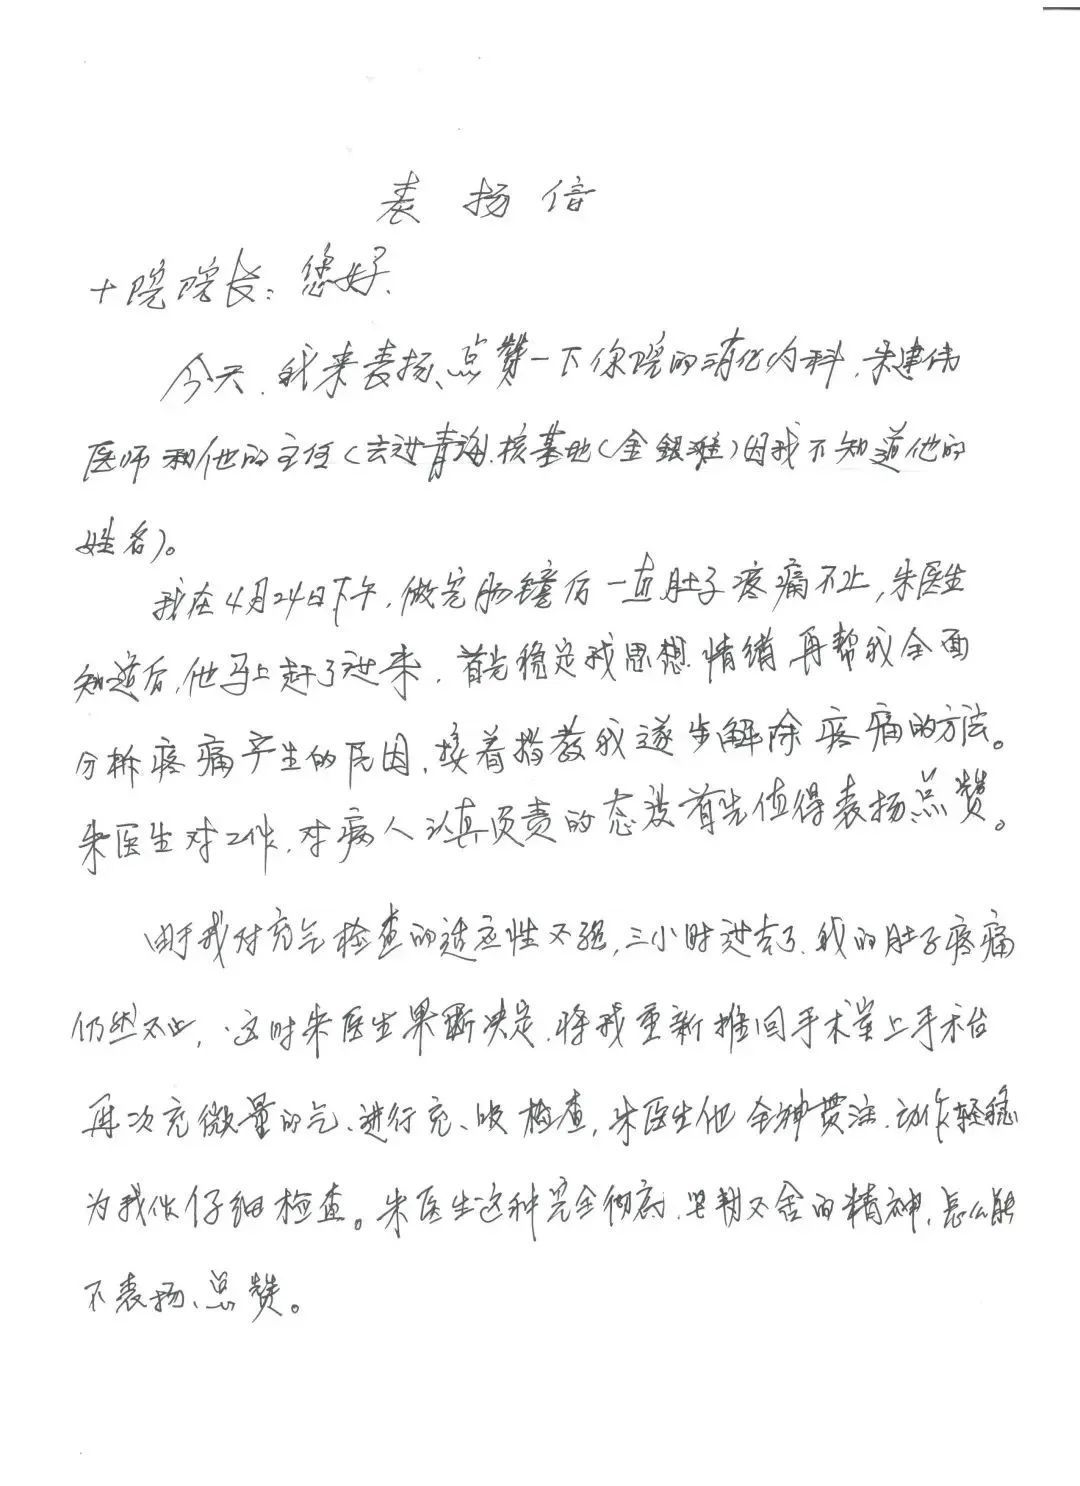 表扬信
十院院长：您好.
今天.我来表扬、点赞一下你院的消化内科.朱建伟
医师和他的主任(去过青海.核基地(金银滩)因我不知道他的
姓名)。
我在4月24日下午,做完肠镜后一直肚子疼痛不止,朱医生
知道后,他马上赶了过来.首先稳定我思想情绪,再帮我全面
分析疼痛产生的原因,接着指教我逐步解除疼痛的方法。
朱医生对工作.对病人认真负责的态度首先值得表扬点赞。
由于我对充气检查的适应性不强,三小时过去了.我的肚子疼痛
仍然不止,这时朱医生果断决定.将我重新推回手术室上手术台
再次充微量的气、进行充、吸检查,朱医生他全神贯注.动作轻稳
为我做仔细检查。朱医生这种完全彻底.坚韧不舍的精神,怎么能
不表扬、点赞。